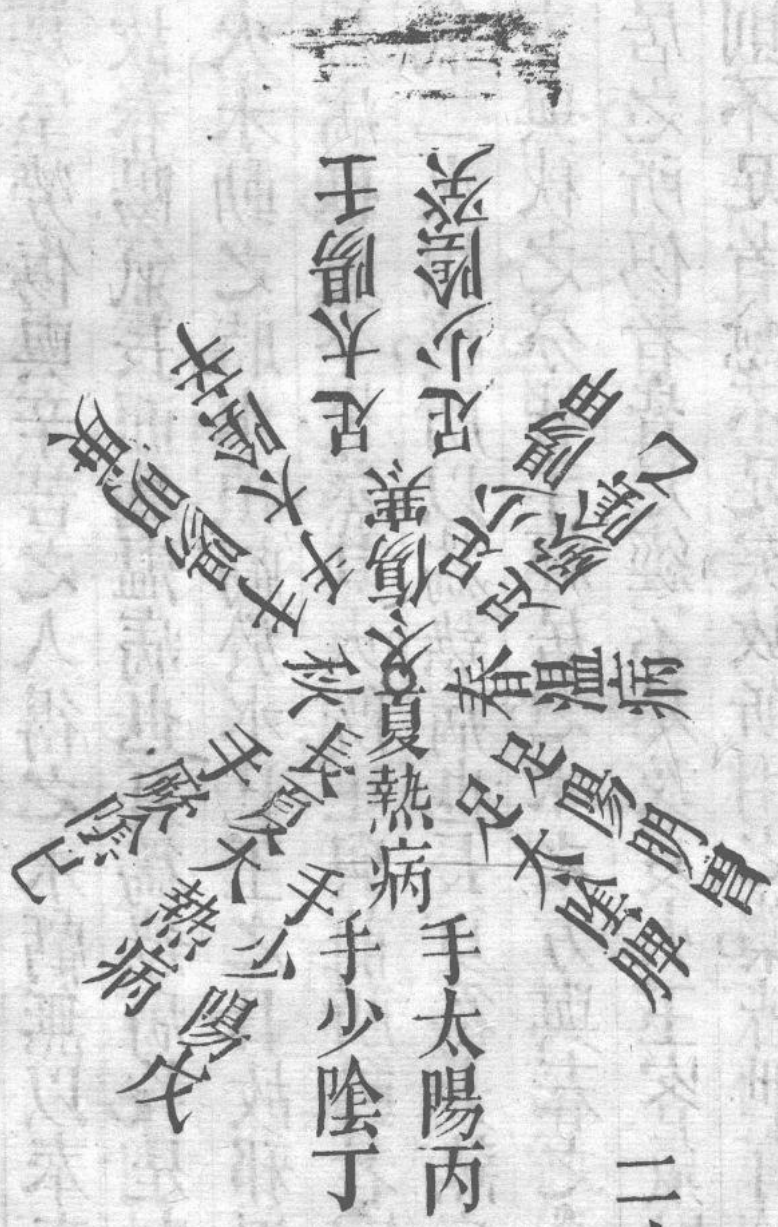 冬傷寒
足太陽壬
足少陰癸
足少陽甲
足厥陰乙
春温病
足陽明胃
足太陰脾
夏熱病
手太陽丙
手少陰丁
長夏大熱病
手少陽戊
手厥陰己
秋
手陽明庚
手太陰辛
二